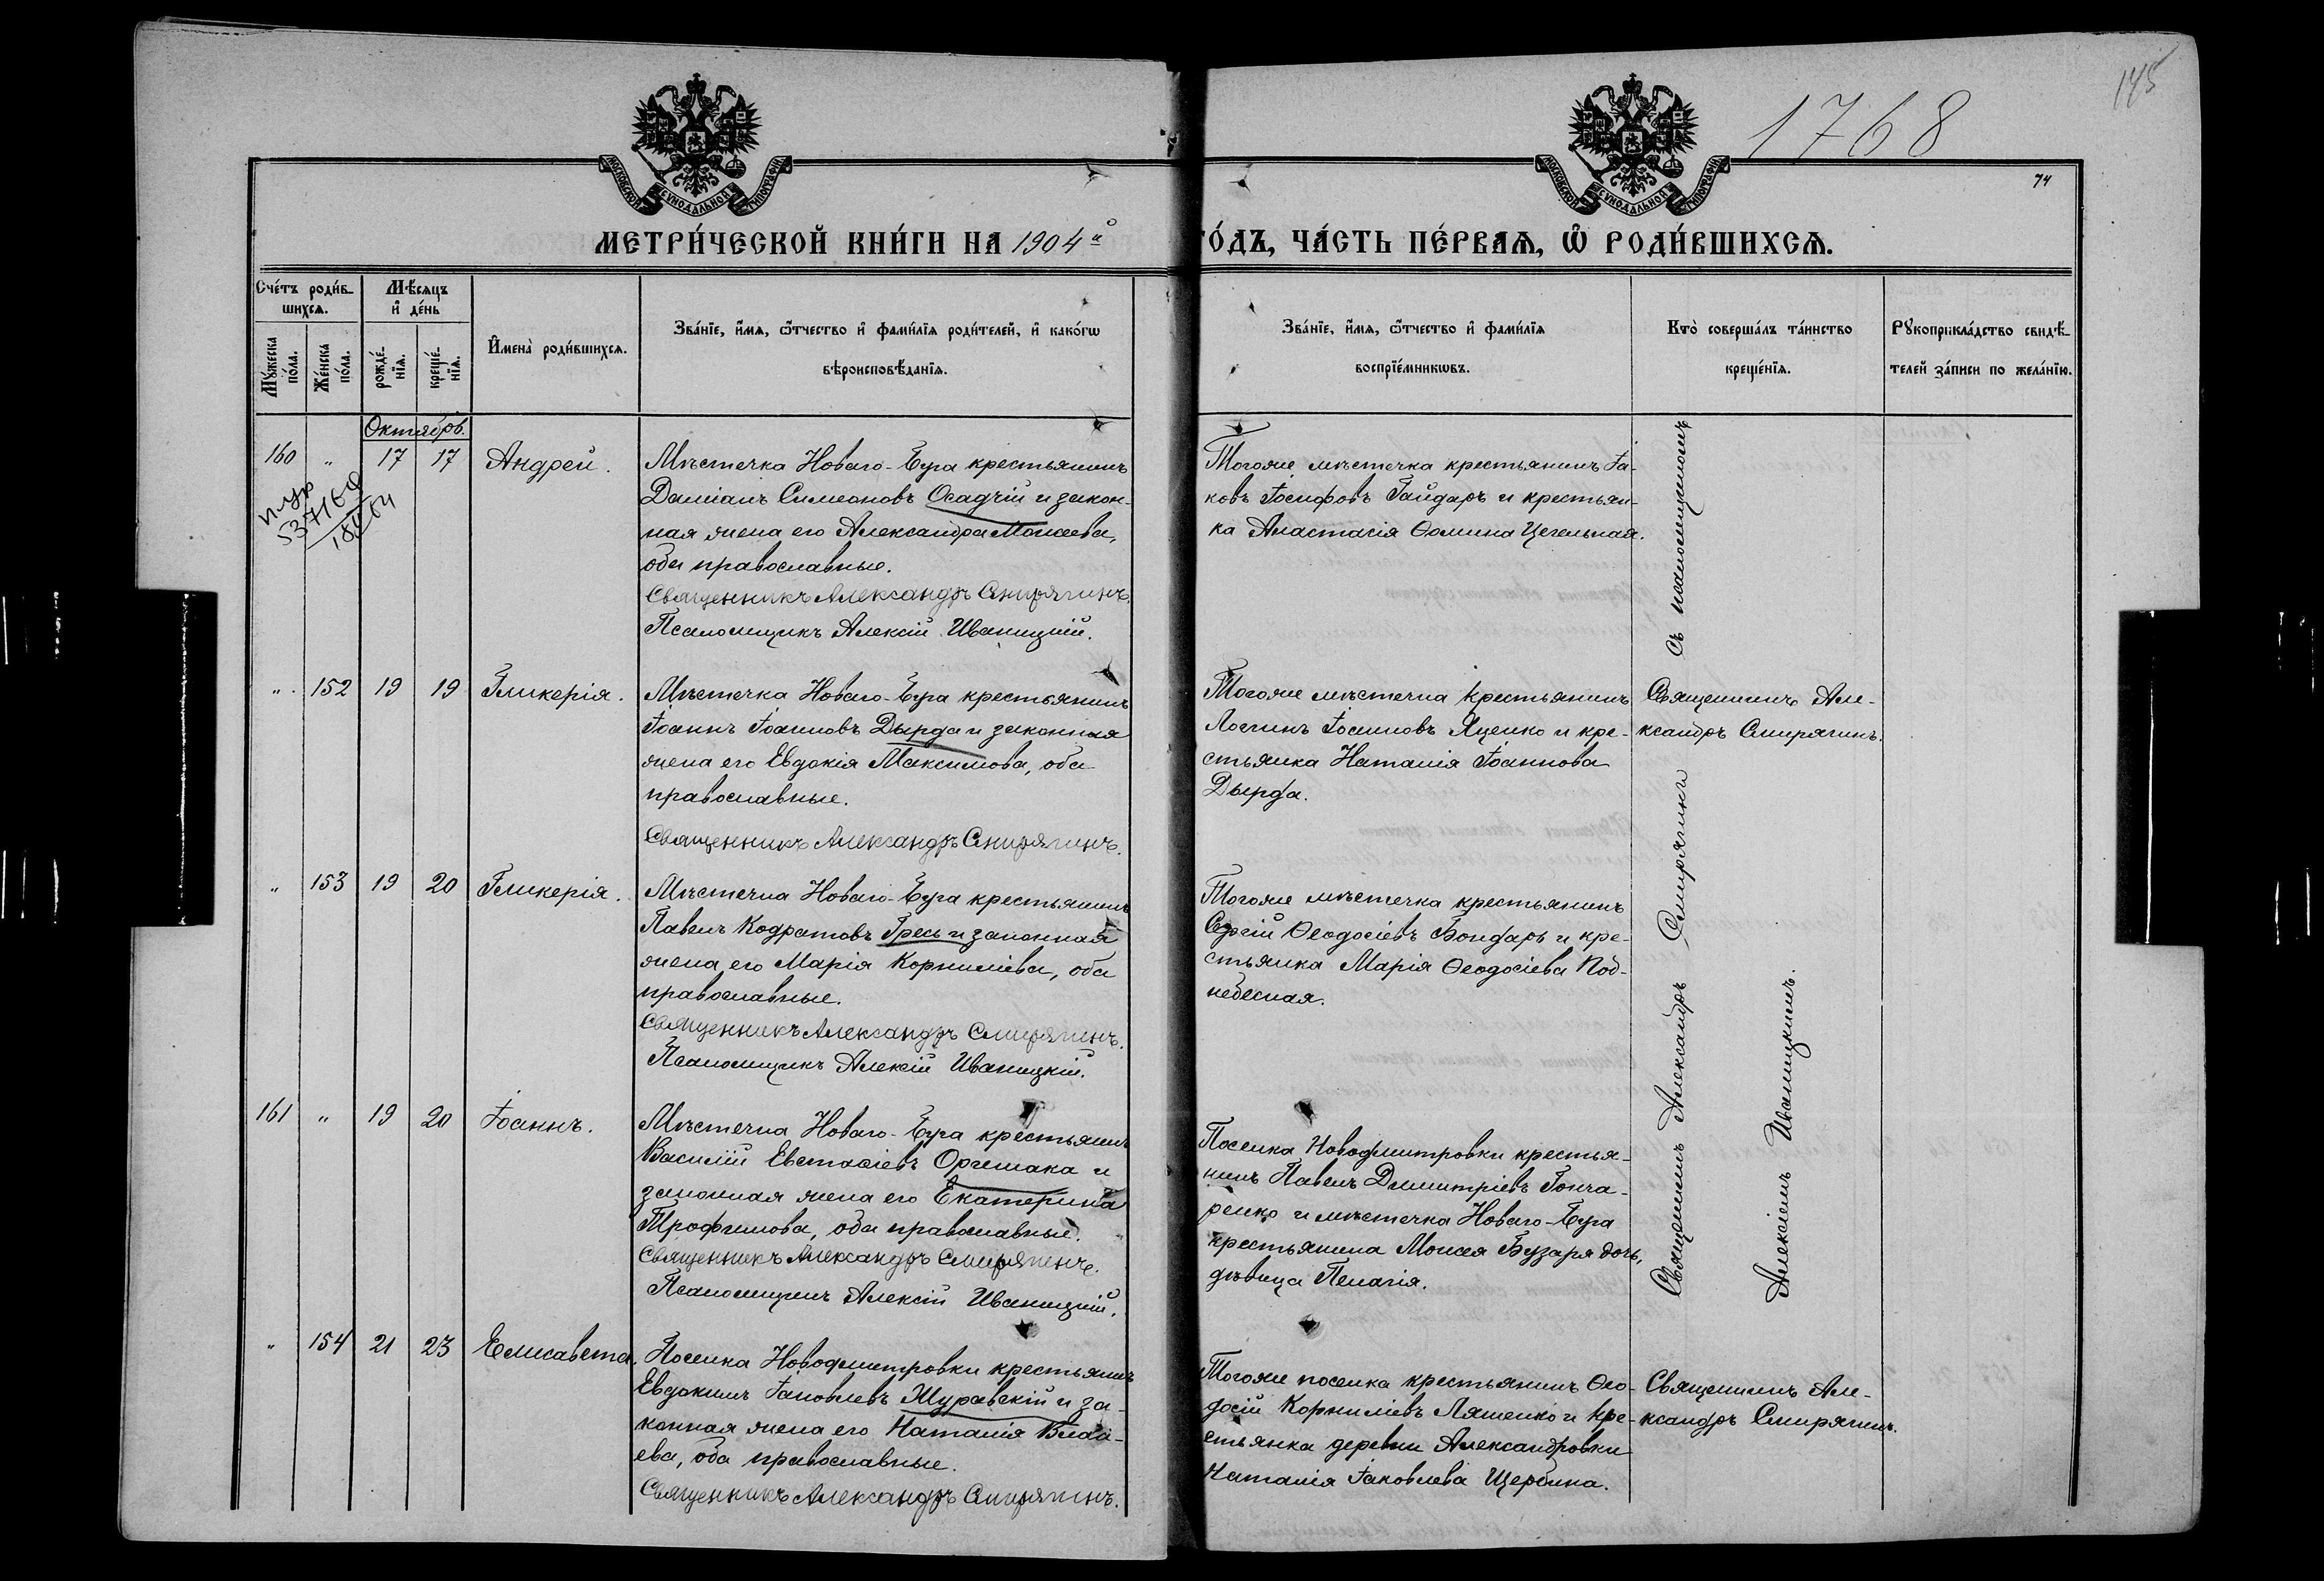 145
1768
74
МОСКОВСКОЙ СѴНОДАЛЬНОЙ ТИПОГРАФІИ
МОСКОВСКОЙ СѴНОДАЛЬНОЙ ТИПОГРАФІИ
МЕТРИ́ЧЕСКОЙ КНИ́ГИ НА 1904й
ГО́ДЪ, ЧА́СТЬ ПЕ́РВАѦ, Ѡ҆ РОДИ́ВШИХСѦ.
Сче́тъ роди́в-
шихсѧ.
Мꙋ́жеска по́ла.
Же́нска по́ла.
Мѣ́сѧцъ
и҆ де́нь
рожде́-нїѧ.
креще́-нїѧ.
И҆мена̀ роди́вшихсѧ.
Зва́нїе, и҆́мѧ, ѻ҆́тчество и҆ фами́лїѧ роди́телей, и҆ како́гѡ
вѣроисповѣ́данїѧ.
Зва́нїе, и҆́мѧ, ѻ҆́тчество и҆ фами́лїѧ
воспрїе́мникѡвъ.
Кто̀ соверша́лъ та́инство
креще́нїѧ.
Рꙋкоприкла́дство свидѣ́-
телей за́писи по жела́нїю.
Октябрь.
160 " 17 17 Андрей.
Мѣстечка Новаго-Буга крестьянинъ
Даміанъ Симеоновъ Осадчій и закон-
ная жена его Александра Моисеева,
оба православные.
Священникъ Александръ Смирягинъ.
Псаломщикъ Алексій Иваницкій.
Тогоже мѣстечка крестьянинъ Іа-
ковъ Іосифовъ Гайдарь и крестьян-
ка Анастасія Ѳомина Цегельная.
" 152 19 19 Гликерія.
Мѣстечка Новаго-Буга крестьянинъ
Іоаннъ Іоанновъ Дырда и законная
жена его Евдокія Максимова, оба
православные.
Священникъ Александръ Смирягинъ.
Тогоже мѣстечка крестьянинъ
Логгинъ Яценко и кре-
стьянка Наталія Іоаннова
Дырда.
Священникъ Але-
ксандръ Смирягинъ.
" 153 19 20 Гликерія.
Мѣстечка Новаго-Буга крестьянинъ
Павелъ Кодратовъ Гресь и законная
жена его Марія Корниліева, оба
православные.
Священникъ Александръ Смирягинъ.
Псаломщикъ Алексій Иваницкій.
Тогоже мѣстечка крестьянинъ
Сергій Ѳеодосіевъ Бондарь и кре-
стьянка Марія Ѳеодосіева Под-
небесная.
161 " 19 20 Іоаннъ.
Мѣстечка Новаго-Буга крестьянинъ
Василій Евстасіевъ Оргешака и
законная жена его Екатерина
Трофимова, оба православные.
Священникъ Александръ Смирягинъ.
Псаломщикъ Алексій Иваницкій.
Поселка Новодмитровки крестья-
нинъ Павелъ Димитріевъ Гонча-
ренко и мѣстечка Новаго-Буга
крестьянина Моисея Бузаря дочь,
дѣвица Пелагія.
Священникъ Александръ Смирягинъ съ псаломщикомъ
Алексіемъ Иваницкимъ.
" 154 21 23 Елисавета.
Поселка Новодмитровки крестьянинъ
Евдокимъ Іаковлевъ Журавскій и за-
конная жена его Наталія Власі-
ева, оба православные.
Священникъ Александръ Смирягинъ.
Тогоже поселка крестьянинъ Ѳео-
досій Корниліевъ Ляшенко и кре-
стьянка деревни Александровки
Наталія Іаковлева Щербина.
Священникъ Але-
ксандръ Смирягинъ.